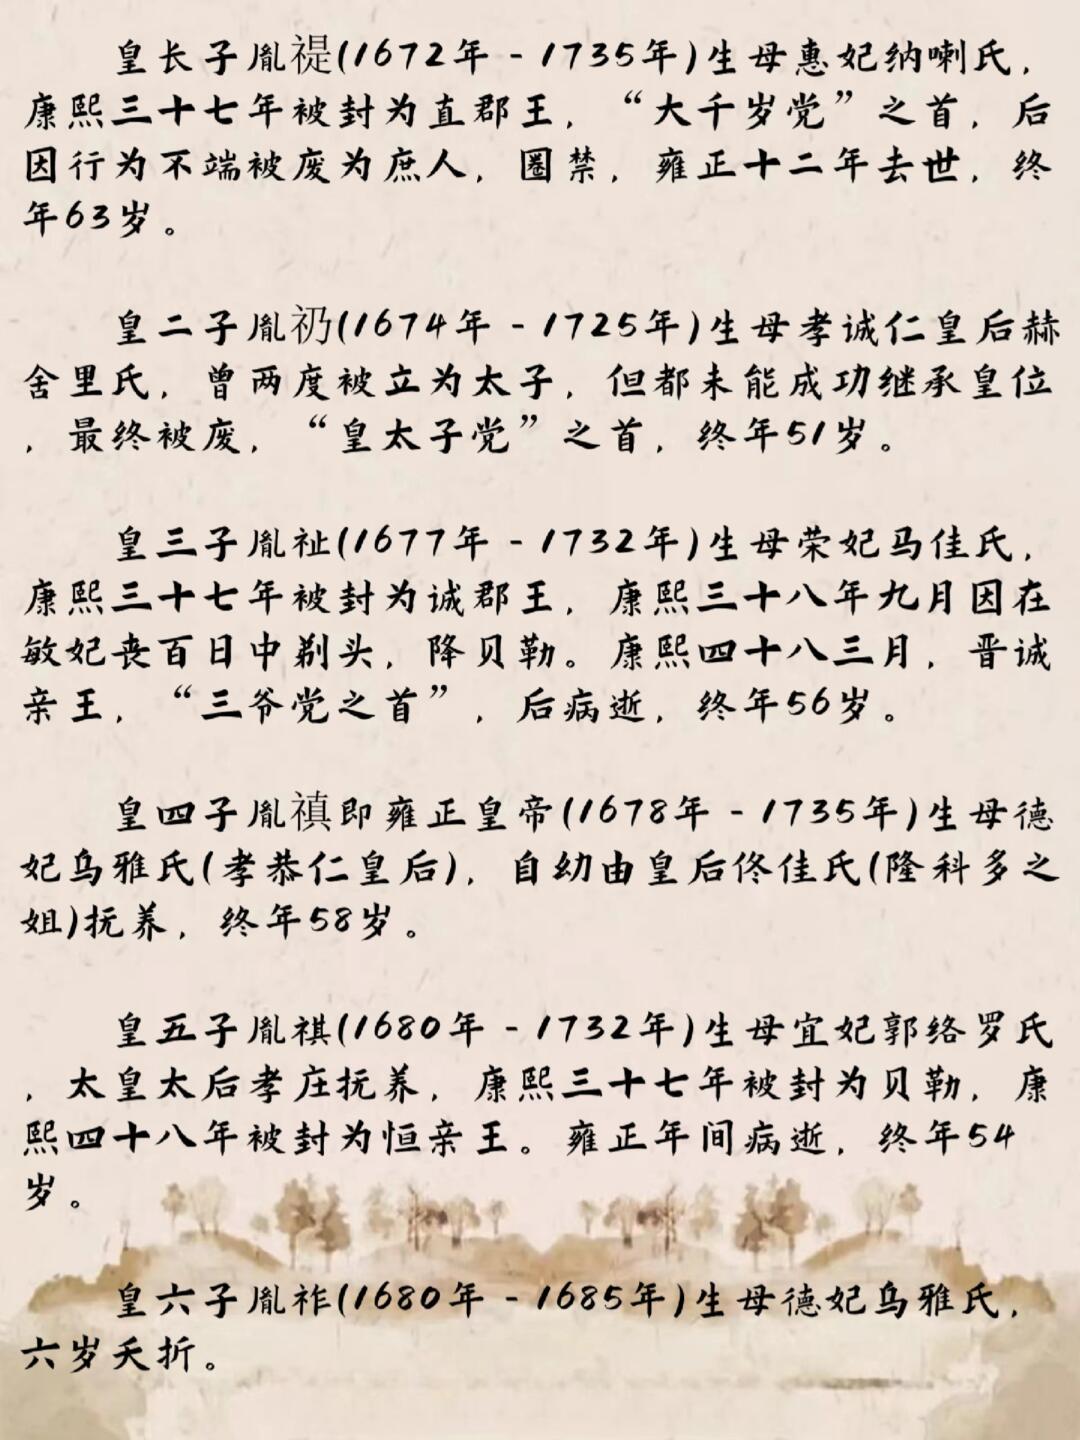 皇长子胤禔(1672年-1735年)生母惠妃纳喇氏,
康熙三十七年被封为直郡王,“大千岁党”之首,后
因行为不端被废为庶人,圈禁,雍正十二年去世,终
年63岁。
皇二子胤礽(1674年-1725年)生母孝诚仁皇后赫
舍里氏,曾两度被立为太子,但都未能成功继承皇位
,最终被废,“皇太子党”之首,终年51岁。
皇三子胤祉(1677年-1732年)生母荣妃马佳氏,
康熙三十七年被封为诚郡王,康熙三十八年九月因在
敏妃丧百日中剃头,降贝勒。康熙四十八三月,晋诚
亲王,“三爷党之首”,后病逝,终年56岁。
皇四子胤禛即雍正皇帝(1678年-1735年)生母德
妃乌雅氏(孝恭仁皇后),自幼由皇后佟佳氏(隆科多之
姐)抚养,终年58岁。
皇五子胤祺(1680年-1732年)生母宜妃郭络罗氏
,太皇太后孝庄抚养,康熙三十七年被封为贝勒,康
熙四十八年被封为恒亲王。雍正年间病逝,终年54
岁。
皇六子胤祚(1680年-1685年)生母德妃乌雅氏,
六岁夭折。